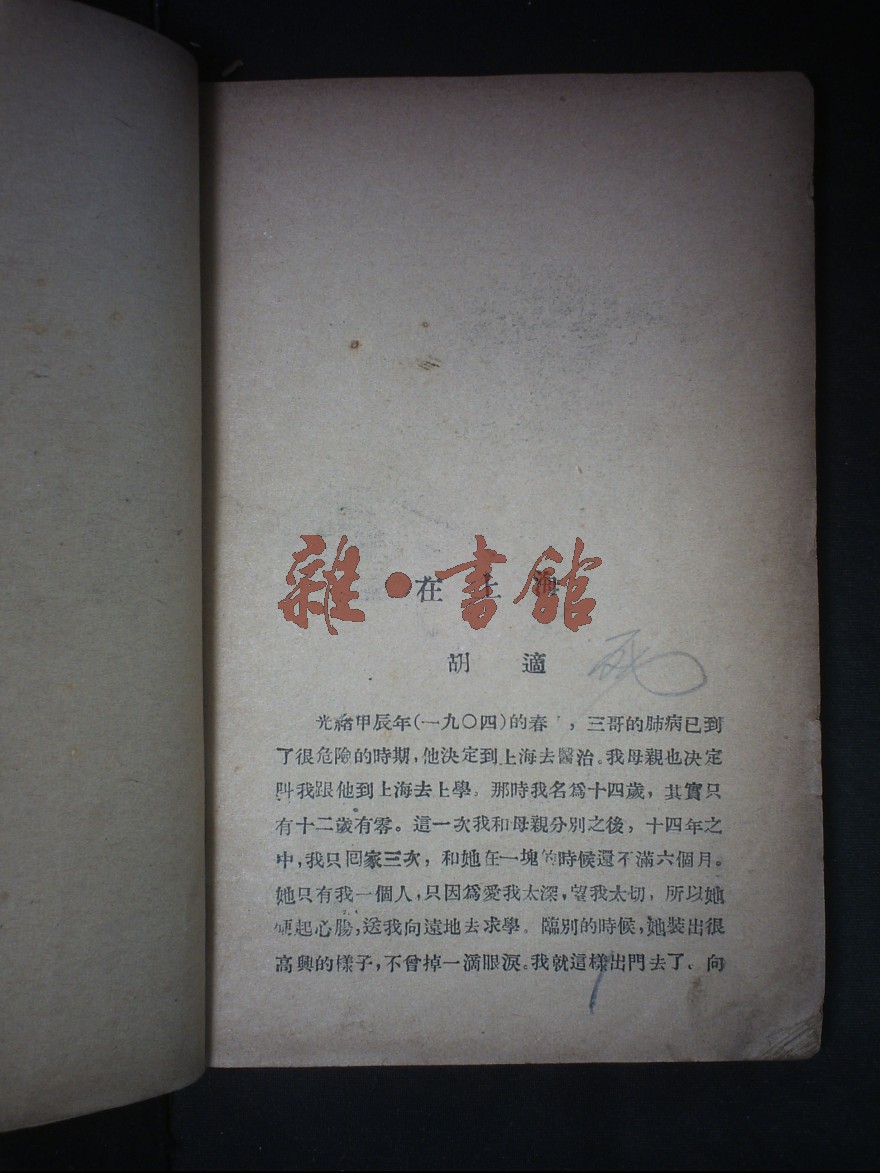 雜·書館
在上海
胡適
光緒甲辰年(一九〇四)的春,三哥的肺病已到
了很危險的時期,他決定到上海去醫治。我母親也決定
叫我跟他到上海去上學。那時我名爲十四歲,其實只
有十二歲有零。這一次我和母親分別之後,十四年之
中,我只回家三次,和她在一塊的時候還不滿六個月。
她只有我一個人,只因爲愛我太深,望我太切,所以她
硬起心腸,送我向遠地去求學。臨別的時候,她裝出很
高興的樣子,不曾掉一滴眼淚。我就這樣出門去了、向